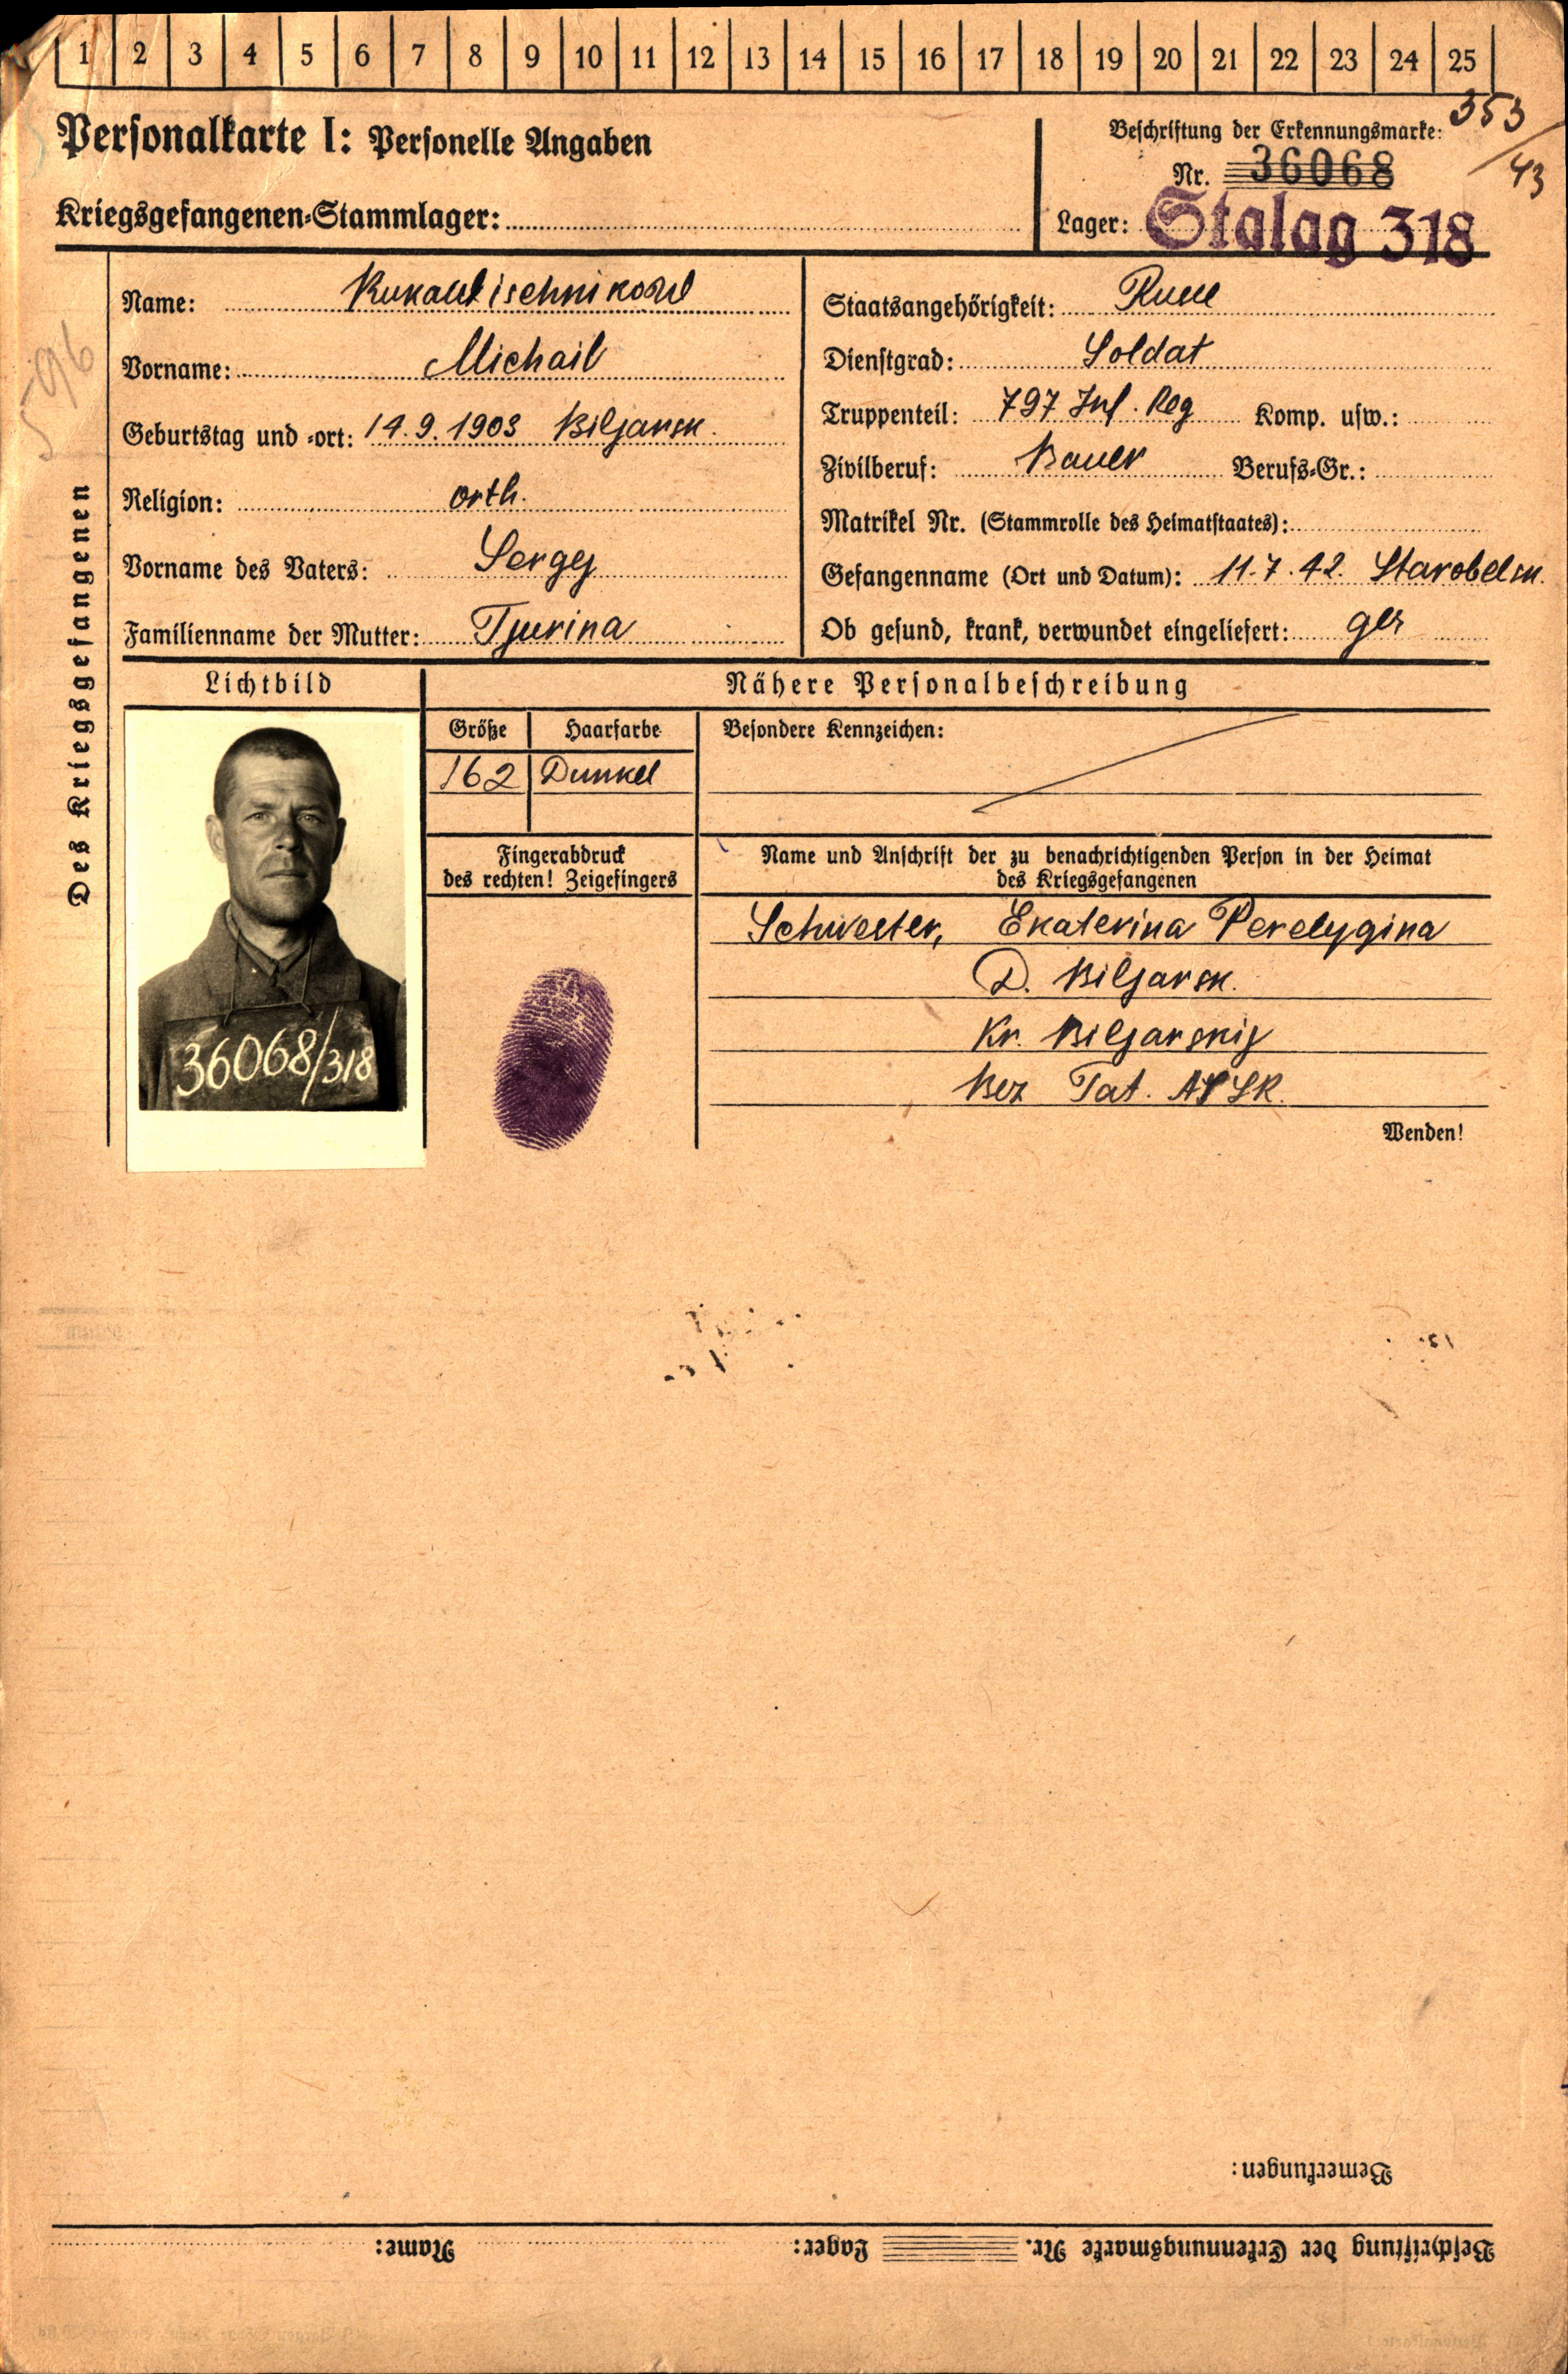 1 2 3 4 5 6 7 8 9 10 11 12 13 14 15 16 17 18 19 20 21 22 23 24 25
Personalkarte I: Personelle Angaben
Kriegsgefangenen-Stammlager:
Beschriftung der Erkennungsmarke:
353/43
Nr. 36068
Lager: Stalag 318
596
Des Kriegsgefangenen
Name:
Vorname: Michail
Geburtstag und -ort: 14.9.1903 Biljarsk.
Religion: orth.
Vorname des Vaters: Sergej
Familienname der Mutter: Tjurina
Staatsangehörigkeit: Russe
Dienstgrad: Soldat
Truppenteil: 797 Inf. Reg Komp. usw.:
Zivilberuf: Bauer Berufs-Gr.:
Matrikel Nr. (Stammrolle des Heimatstaates):
Gefangenname (Ort und Datum): 11.7.42. Starobelsk.
Ob gesund, krank, verwundet eingeliefert: ges
Lichtbild
36068/318
Nähere Personalbeschreibung
Größe Haarfarbe
162 Dunkel
Besondere Kennzeichen:
Fingerabdruck
des rechten! Zeigefingers
Name und Anschrift der zu benachrichtigenden Person in der Heimat
des Kriegsgefangenen
Schwester, Ekaterina Perelygina
D. Biljarsk.
Kr. Biljarskij
Bez Tat. ASSR.
Wenden!
Bemerkungen:
Beschriftung der Erkennungsmarke Nr. Lager: Name: